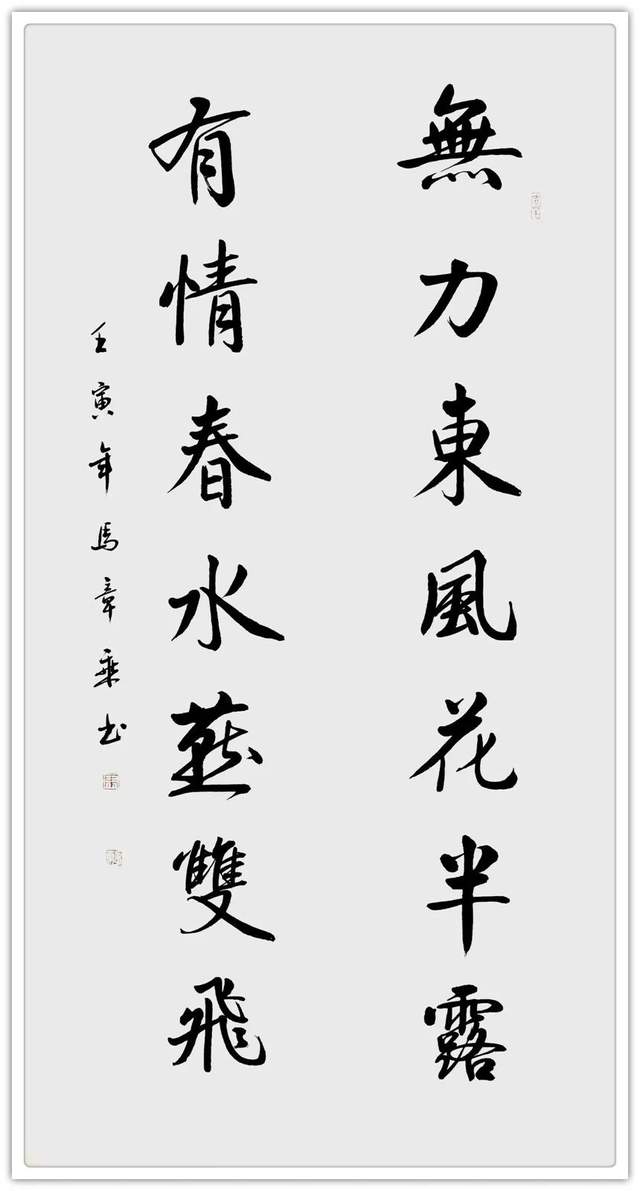 無力東風花半露
有情春水燕雙飛
壬寅年馬章乘书